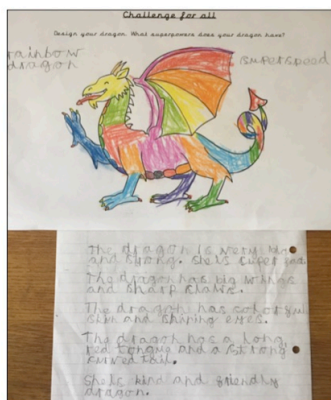 Challenge for all
Design your dragon. What superpowers does your dragon have?
rainbow
dragon
superspeed
The dragon is very big
and strong. She is super
The dragon has big wings
and sharp
The dragon has colourful
skin and shining eyes.
The dragon has a long,
red tongue and a strong
curved tail.
She is kind and friendly
dragon.